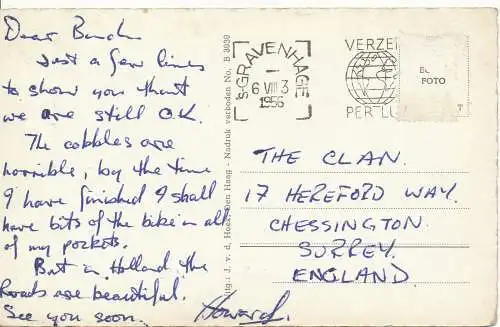 Dear Bunch
Just a few lines
to show you that
we are still O.K.
The cobbles are
horrible, by the time
I have finished I shall
have bits of the bike in all
of my pockets.
But in Holland the
Roads are beautiful.
See you soon.
Howard.
Uitg.: J. v. d. Hoek, Den Haag - Nadruk verboden No. B 3039
's-GRAVENHAGE
6 VIII 3
1956
VERZE
PER LU
T
FOTO
THE CLAN.
17 HEREFORD WAY.
CHESSINGTON.
SURREY.
ENGLAND